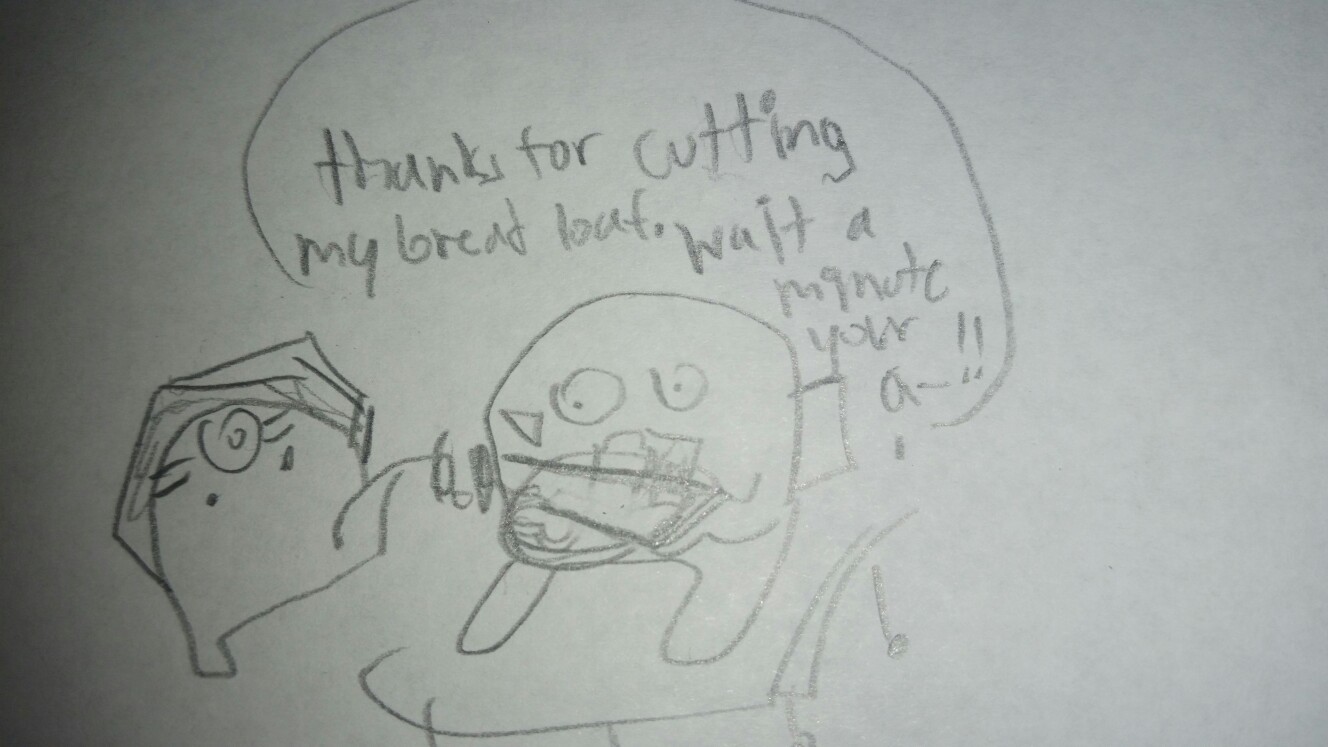 thanks for cutting
my bread loaf. wait a
mqnute
your !!
a- !!